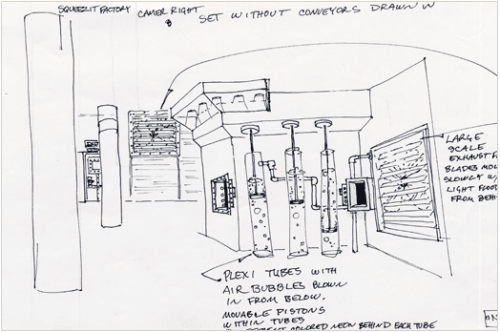 SQUEEZIT FACTORY CAMER RIGHT
SET WITHOUT CONVEYORS DRAWN IN
LARGE
SCALE
EXHAUST F
BLADES MO
SLOWLY W/
LIGHT FLOO
FROM BEH
PLEXI TUBES WITH
AIR BUBBLES BLOWN
IN FROM BELOW.
MOVABLE PISTONS
WITHIN TUBES
COLORED NEON BEHIND EACH TUBE